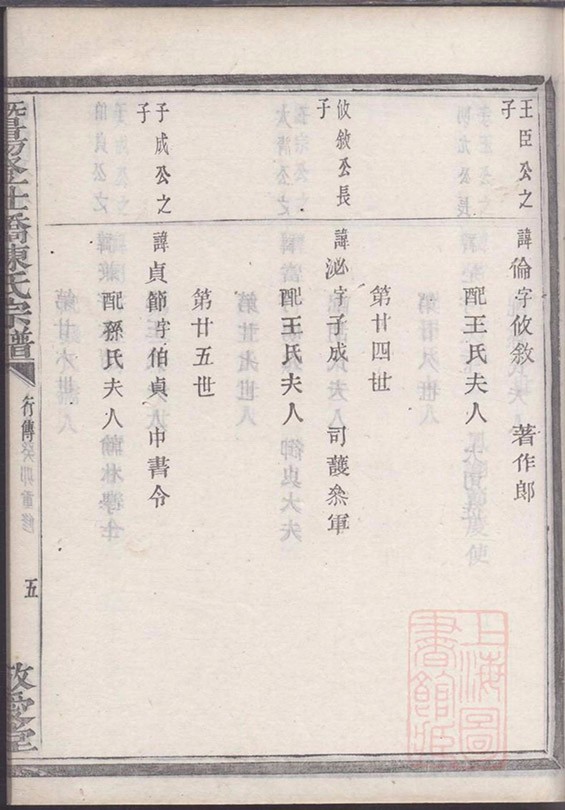 王臣公之
子
諱倫字攸敘　著作郎
配王氏夫人
第廿四世
攸敘公長
子
諱泌字子成　司護叅軍
配王氏夫人
第廿五世
子成公之
子
諱貞節字伯貞中書令
配孫氏夫人
橋陳氏宗譜
行傳癸卯重修
五
敬愛堂
上海圖
書館藏